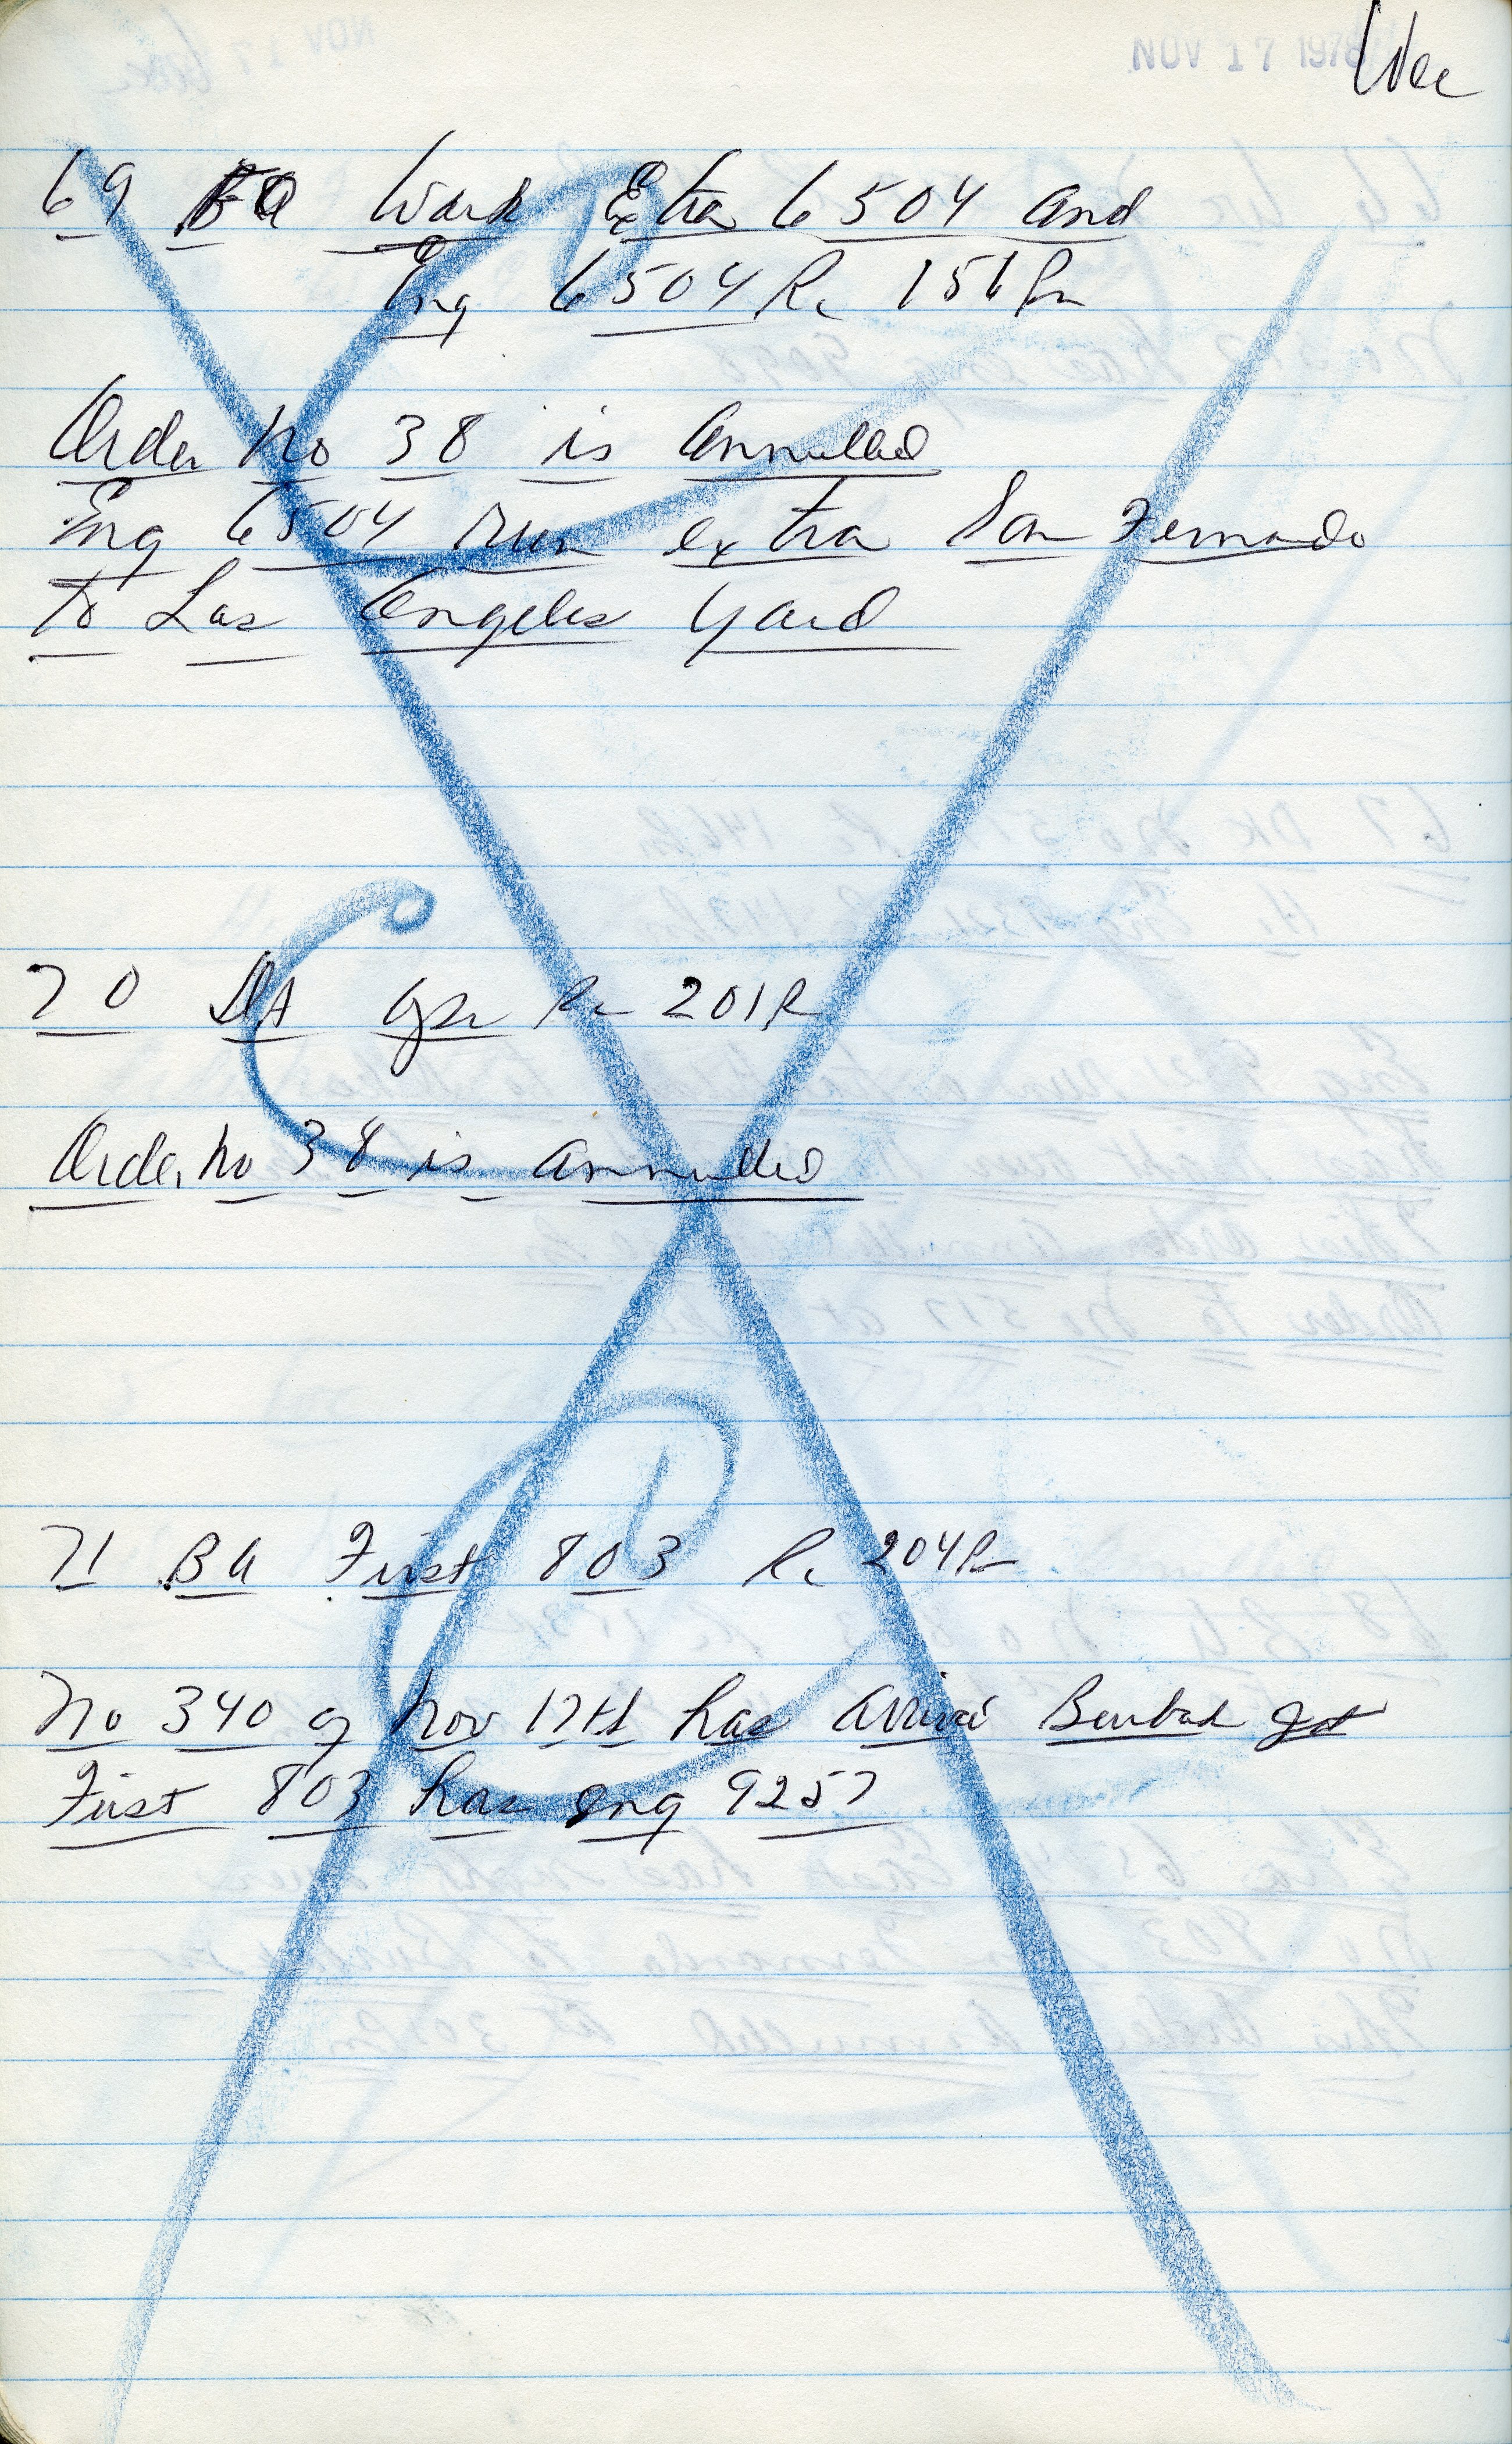 NOV 17 1978
69 BA Work Extra 6504 and
Eng 6504 Rc 156 Pm
Order No 38 is annulled
Eng 6504 run extra San Fernando
to Los Angeles Yard
70 Opr 201P
Order No 38 is annulled
71 BA First 803 Rc 204Pm
No 340 of Nov 17th has arrived Burbank Jct
First 803 has eng 9257